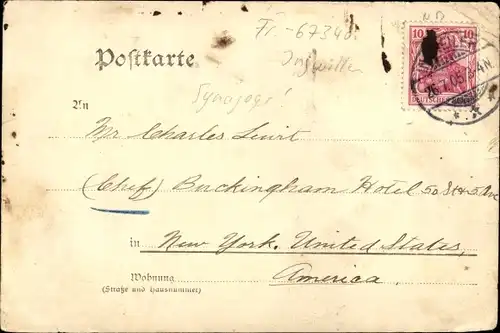 Fr.-67340
Postkarte.
Ingwiller
An
Synagoge!
10 10
DEUTSCHES REICH
26.7.05
Mr Charles
(Chef) Buckingham Hotel 50 St & 5 Ave
in New York. United States,
Wohnung America.
(Straße und Hausnummer)